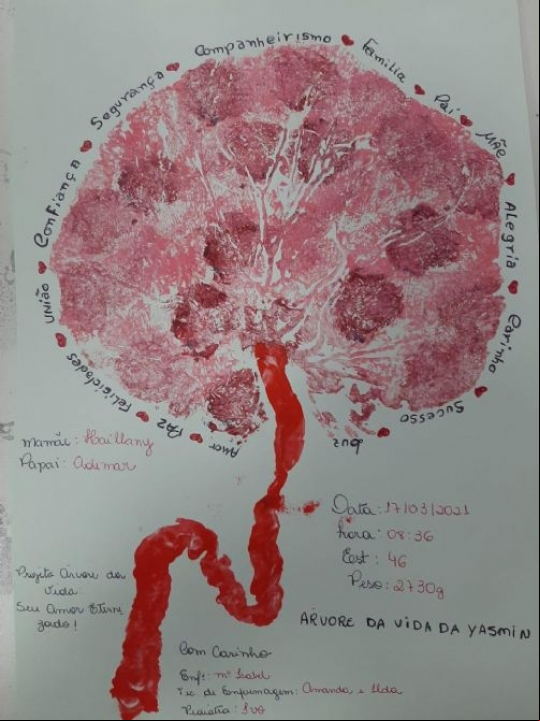 Companheirismo
Família
Pai
Mãe
Alegria
Carinho
Sucesso
Luz
Amor
Paz
Felicidades
União
Confiança
Segurança
Mamãe: Haillany
Papai: Ademar
Data: 17/03/2021
hora: 08:36
Est: 46
Peso: 2730g
Projeto Árvore da
Vida:
Seu Amor Eterni
zado!
ÁRVORE DA VIDA DA YASMIN
Com Carinho
Enfª: mª Isabel
Tec. de Enfermagem: Amanda e Ilda
Pediatra: Ivo